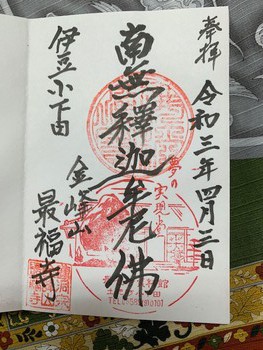 奉拝
令和三年四月三日
南無釋迦牟尼佛
夢の
伊豆小下田
金峰山
最福寺